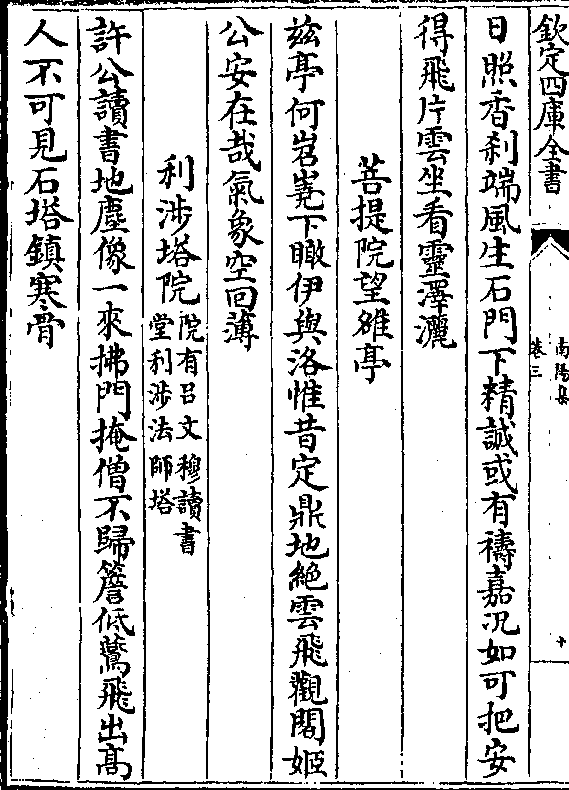 欽定四庫全書
南陽集
卷三
十
日照香刹端風生石門下精誠或有禱嘉況如可把安
得飛片雲坐看靈澤灑
菩提院望雒亭
兹亭何岧嶤下瞰伊與洛惟昔定鼎地絶雲飛觀閣姬
公安在哉氣象空回薄
利涉塔院院有吕文穆讀書
堂利涉法師塔
許公讀書地塵像一來拂門掩僧不歸簷低鶯飛出髙
人不可見石塔鎮寒骨